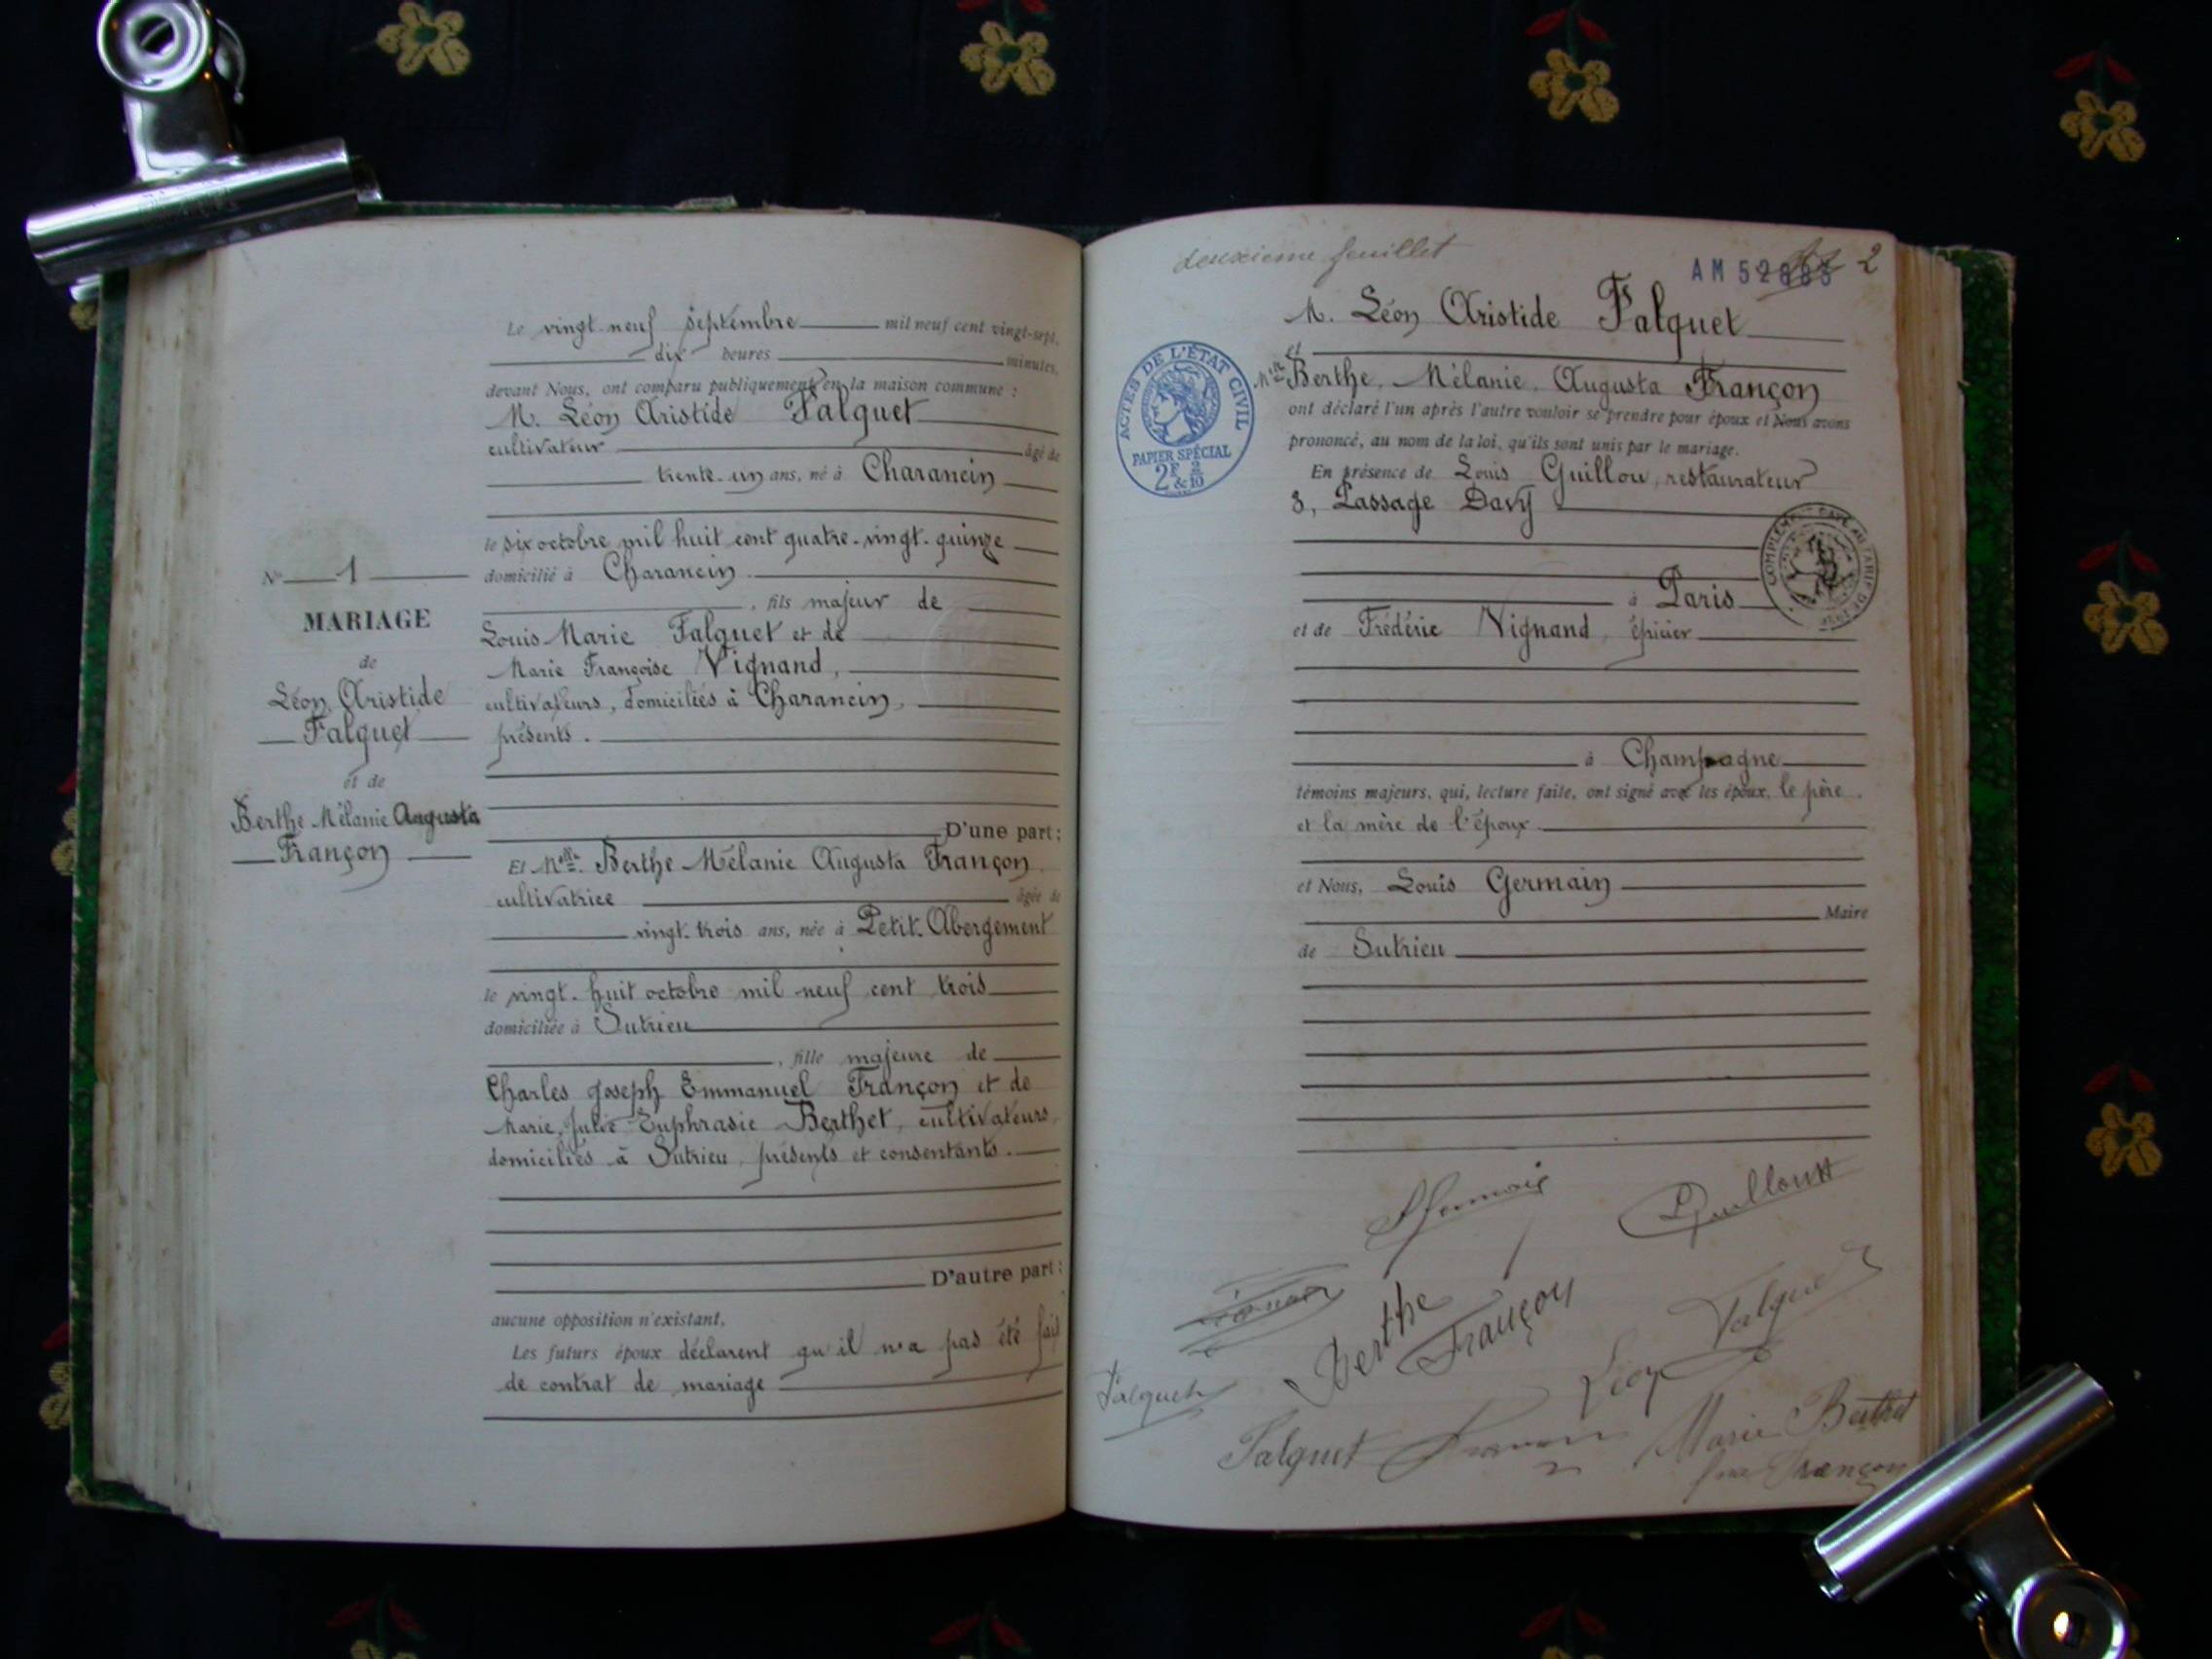 Le vingt-neuf septembre mil neuf cent vingt-sept,
dix heures minutes,
devant Nous, ont comparu publiquement en la maison commune :
M. Léon Aristide Falquet
cultivateur âgé de
trente-un ans, né à Charancin
le six octobre mil huit cent quatre-vingt-quinze
domicilié à Charancin
, fils majeur de
Louis Marie Falquet et de
Marie Françoise Vignand,
cultivateurs, domiciliés à Charancin,
présents.
D'une part ;
Et Melle Berthe Mélanie Augusta Françon
cultivatrice âgée de
vingt-trois ans, née à Petit-Abergement
le vingt-huit octobre mil neuf cent trois
domiciliée à Sutrieu
, fille majeure de
Charles Joseph Emmanuel Françon et de
Marie, Julie Euphrasie Berthet, cultivateurs,
domiciliés à Sutrieu, présents et consentants.
D'autre part :
aucune opposition n'existant,
Les futurs époux déclarent qu'il n'a pas été fait
de contrat de mariage
No 1
MARIAGE
de
Léon Aristide
Falquet
et de
Berthe Mélanie Augusta
Françon
deuxième feuillet
AM 52883 2
M. Léon Aristide Falquet
et
Melle Berthe, Mélanie, Augusta Françon
ont déclaré l'un après l'autre vouloir se prendre pour époux et Nous avons
prononcé, au nom de la loi, qu'ils sont unis par le mariage.
En présence de Louis Guillou, restaurateur
8, Passage Davy
à Paris
et de Frédéric Vignand, épicier
à Champagne
témoins majeurs, qui, lecture faite, ont signé avec les époux, le père
et la mère de l'époux.
et Nous, Louis Germain
Maire
de Sutrieu
ACTES DE L'ÉTAT CIVIL
PAPIER SPÉCIAL
2F &2/10
LGermain
LGuilloux
Berthe
Françon
Léon Falquet
Falquet
Falquet
Marie Berthet
Françon